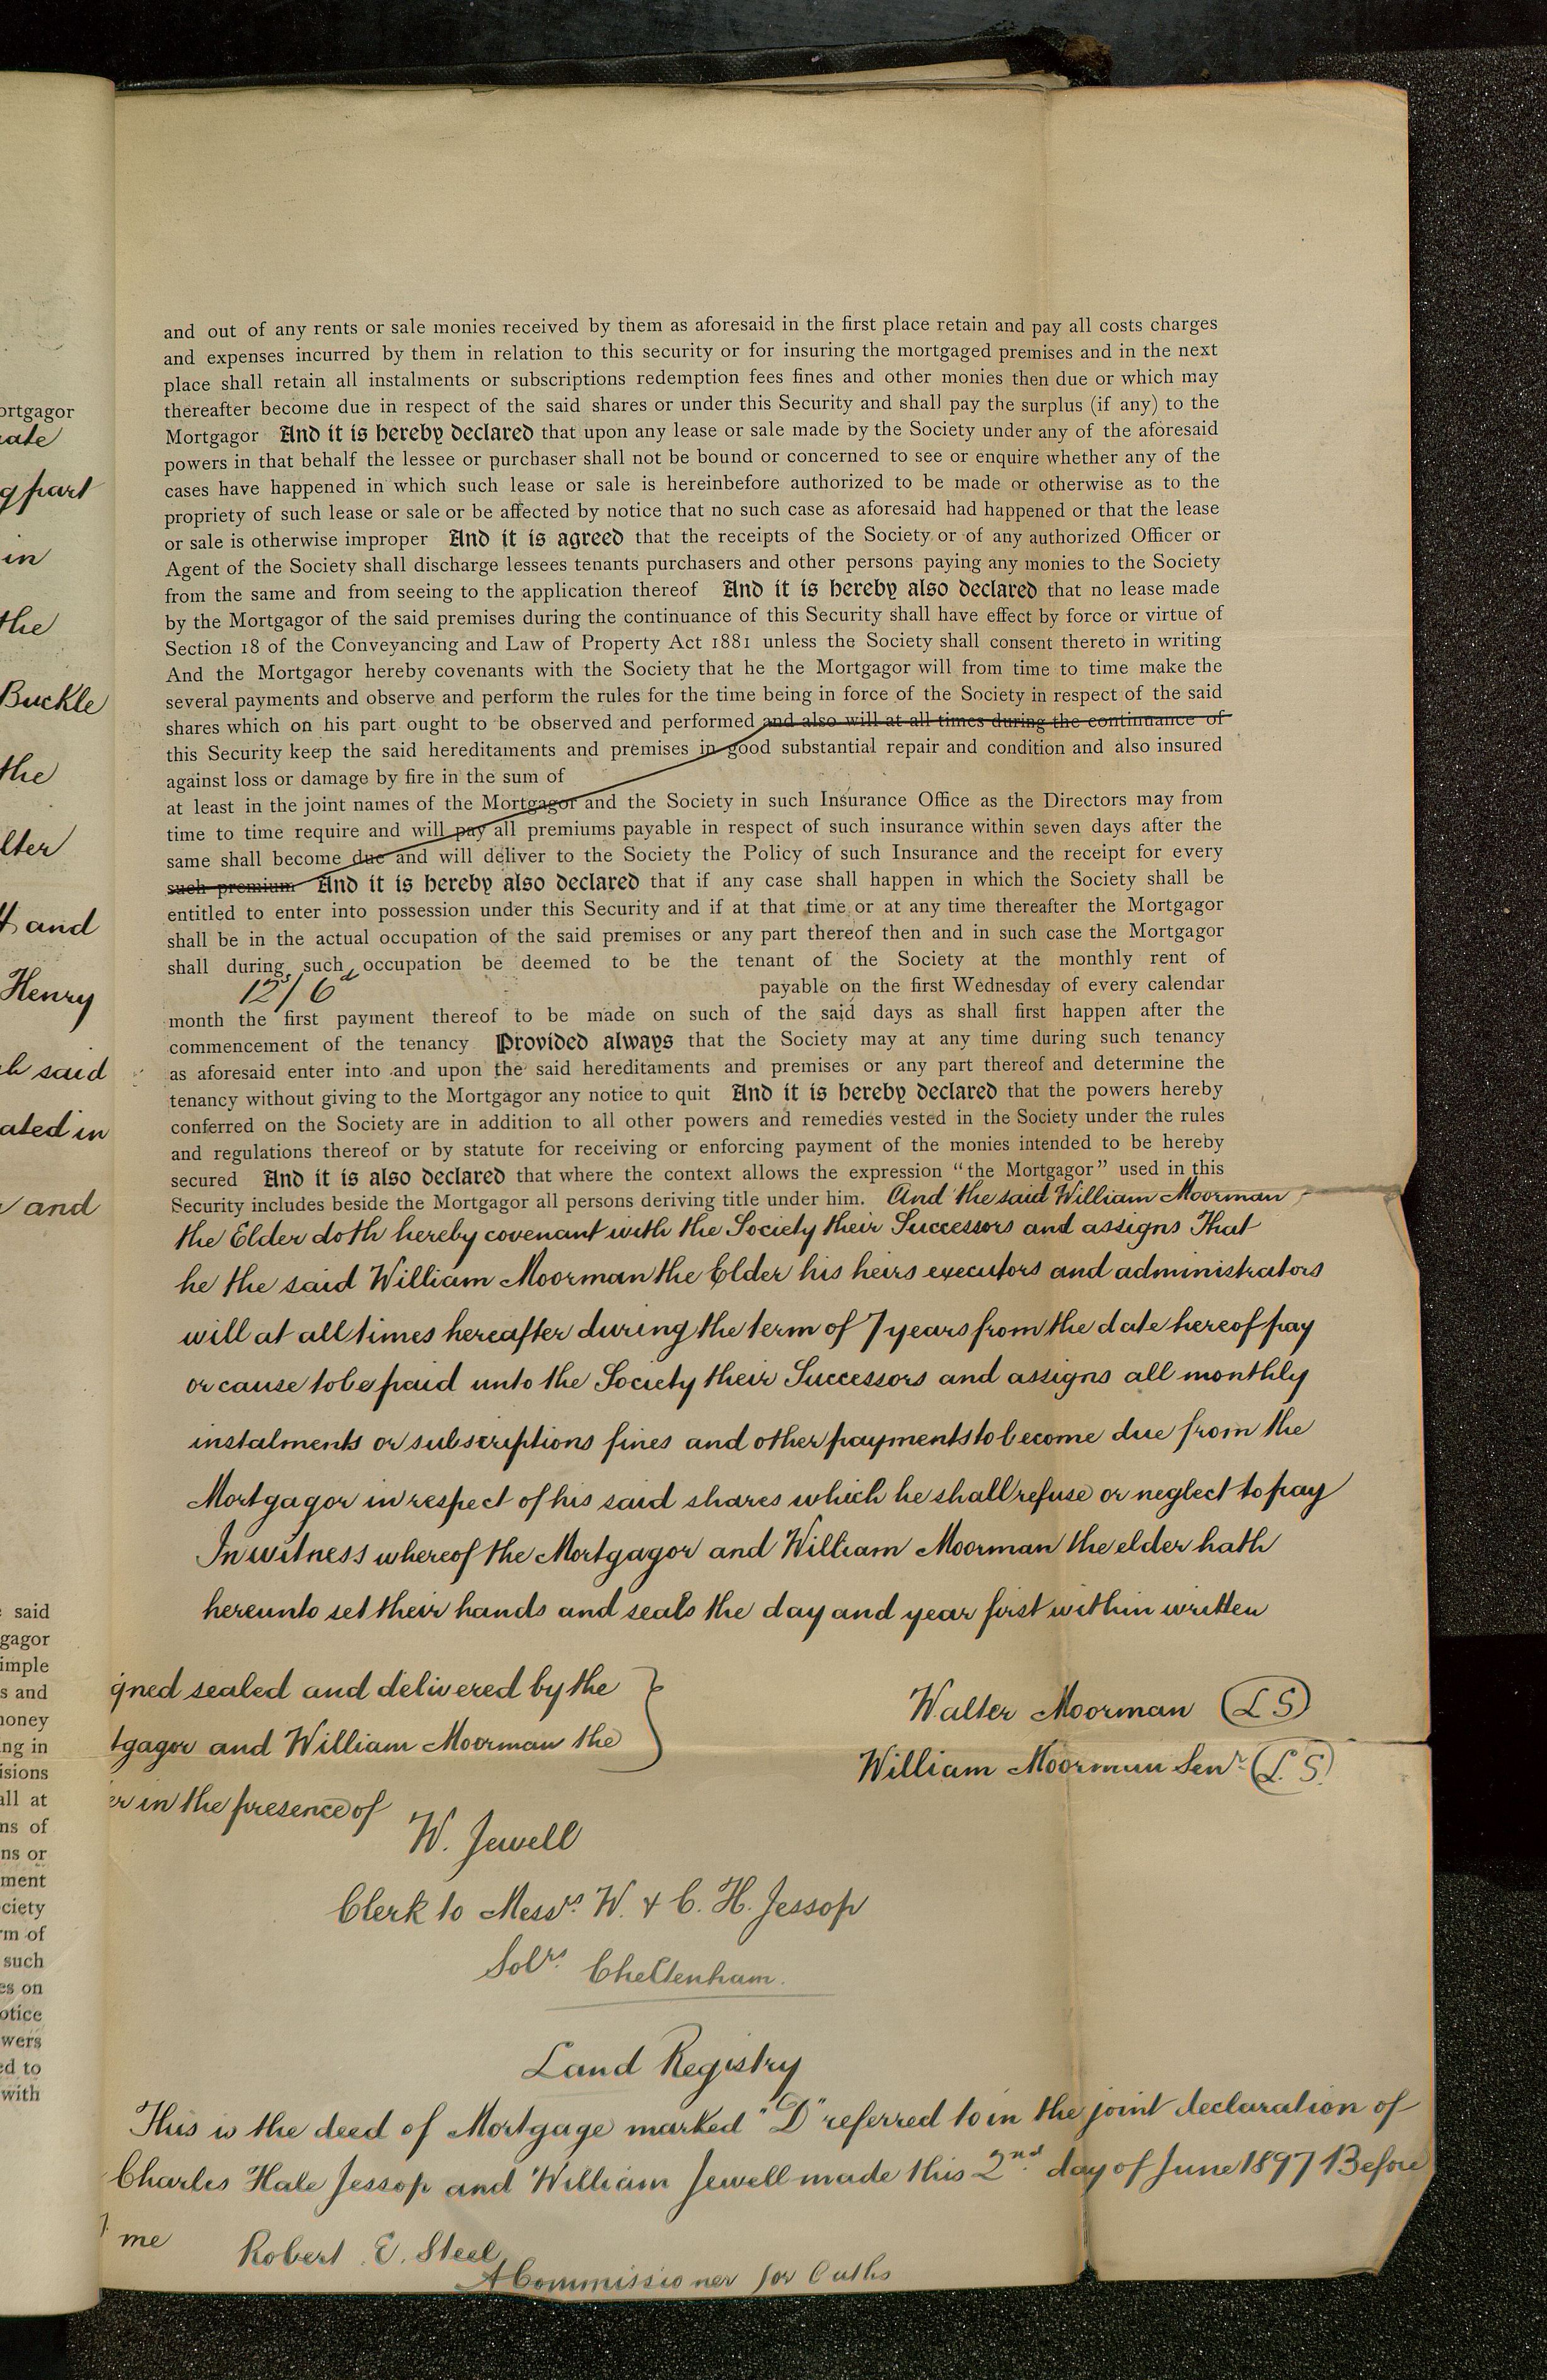 ortgagor
g part
in
the
Buckle
the
lter
and
Henry
said
ated in
and
said
gagor
imple
s and
money
ng in
isions
all at
ns of
ns or
ment
ciety
rm of
such
es on
otice
wers
ed to
with
and out of any rents or sale monies received by them as aforesaid in the first place retain and pay all costs charges
and expenses incurred by them in relation to this security or for insuring the mortgaged premises and in the next
place shall retain all instalments or subscriptions redemption fees fines and other monies then due or which may
thereafter become due in respect of the said shares or under this Security and shall pay the surplus (if any) to the
Mortgagor And it is hereby declared that upon any lease or sale made by the Society under any of the aforesaid
powers in that behalf the lessee or purchaser shall not be bound or concerned to see or enquire whether any of the
cases have happened in which such lease or sale is hereinbefore authorized to be made or otherwise as to the
propriety of such lease or sale or be affected by notice that no such case as aforesaid had happened or that the lease
or sale is otherwise improper And it is agreed that the receipts of the Society or of any authorized Officer or
Agent of the Society shall discharge lessees tenants purchasers and other persons paying any monies to the Society
from the same and from seeing to the application thereof And it is hereby also declared that no lease made
by the Mortgagor of the said premises during the continuance of this Security shall have effect by force or virtue of
Section 18 of the Conveyancing and Law of Property Act 1881 unless the Society shall consent thereto in writing
And the Mortgagor hereby covenants with the Society that he the Mortgagor will from time to time make the
several payments and observe and perform the rules for the time being in force of the Society in respect of the said
shares which on his part ought to be observed and performed and also will at all times during the continuance of
this Security keep the said hereditaments and premises in good substantial repair and condition and also insured
against loss or damage by fire in the sum of
at least in the joint names of the Mortgagor and the Society in such Insurance Office as the Directors may from
time to time require and will pay all premiums payable in respect of such insurance within seven days after the
same shall become due and will deliver to the Society the Policy of such Insurance and the receipt for every
such premium And it is hereby also declared that if any case shall happen in which the Society shall be
entitled to enter into possession under this Security and if at that time or at any time thereafter the Mortgagor
shall be in the actual occupation of the said premises or any part thereof then and in such case the Mortgagor
shall during such occupation be deemed to be the tenant of the Society at the monthly rent of
12s/6d payable on the first Wednesday of every calendar
month the first payment thereof to be made on such of the said days as shall first happen after the
commencement of the tenancy Provided always that the Society may at any time during such tenancy
as aforesaid enter into and upon the said hereditaments and premises or any part thereof and determine the
tenancy without giving to the Mortgagor any notice to quit And it is hereby declared that the powers hereby
conferred on the Society are in addition to all other powers and remedies vested in the Society under the rules
and regulations thereof or by statute for receiving or enforcing payment of the monies intended to be hereby
secured And it is also declared that where the context allows the expression "the Mortgagor" used in this
Security includes beside the Mortgagor all persons deriving title under him. And the said William Moorman
the Elder doth hereby covenant with the Society their Successors and assigns That
he the said William Moorman the Elder his heirs executors and administrators
will at all times hereafter during the term of 7 years from the date hereof pay
or cause to be paid unto the Society their Successors and assigns all monthly
instalments or subscriptions fines and other payments to become due from the
Mortgagor in respect of his said shares which he shall refuse or neglect to pay
In witness whereof the Mortgagor and William Moorman the elder hath
hereunto set their hands and seals the day and year first within written
gned sealed and delivered by the
tgagor and William Moorman the
er in the presence of
Walter Moorman (L S)
William Moorman Senr (L. S.)
W. Jewell
Clerk to Messrs. W. & C. H. Jessop
Solrs. Cheltenham.
Land Registry
This is the deed of Mortgage marked "D" referred to in the joint declaration of
Charles Hale Jessop and William Jewell made this 2nd day of June 1897 Before
me Robert E. Steel
A Commissioner for Oaths